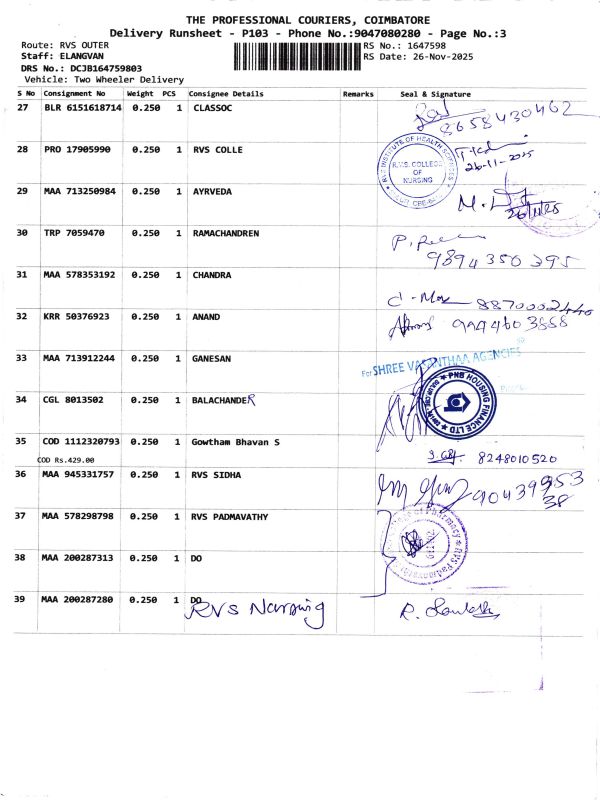 THE PROFESSIONAL COURIERS, COIMBATORE
Delivery Runsheet - P103 - Phone No.:9047080280 - Page No.:3
Route: RVS OUTER
RS No.: 1647598
Staff: ELANGVAN
RS Date: 26-Nov-2025
DRS No.: DCJB164759803
Vehicle: Two Wheeler Delivery
S No Consignment No Weight PCS Consignee Details Remarks Seal & Signature
27 BLR 6151618714 0.250 1 CLASSOC
8658430462
28 PRO 17905990 0.250 1 RVS COLLE
R.V.S. COLLEGE
OF
NURSING
INSTITUTE OF HEALTH SCIENCES
26-11-2025
29 MAA 713250984 0.250 1 AYRVEDA
30 TRP 7059470 0.250 1 RAMACHANDREN
9894350395
31 MAA 578353192 0.250 1 CHANDRA
8870002440
32 KRR 50376923 0.250 1 ANAND
9994603858
33 MAA 713912244 0.250 1 GANESAN
For SHREE VASANTHAA AGENCIES
34 CGL 8013502 0.250 1 BALACHANDER
PNB HOUSING FINANCE LTD
35 COD 1112320793 0.250 1 Gowtham Bhavan S
8248010520
COD Rs.429.00
36 MAA 945331757 0.250 1 RVS SIDHA
37 MAA 578298798 0.250 1 RVS PADMAVATHY
of Pharmacy ★ RVS Padmavathi
38 MAA 200287313 0.250 1 DO
39 MAA 200287280 0.250 1 DO
RVS Nursing